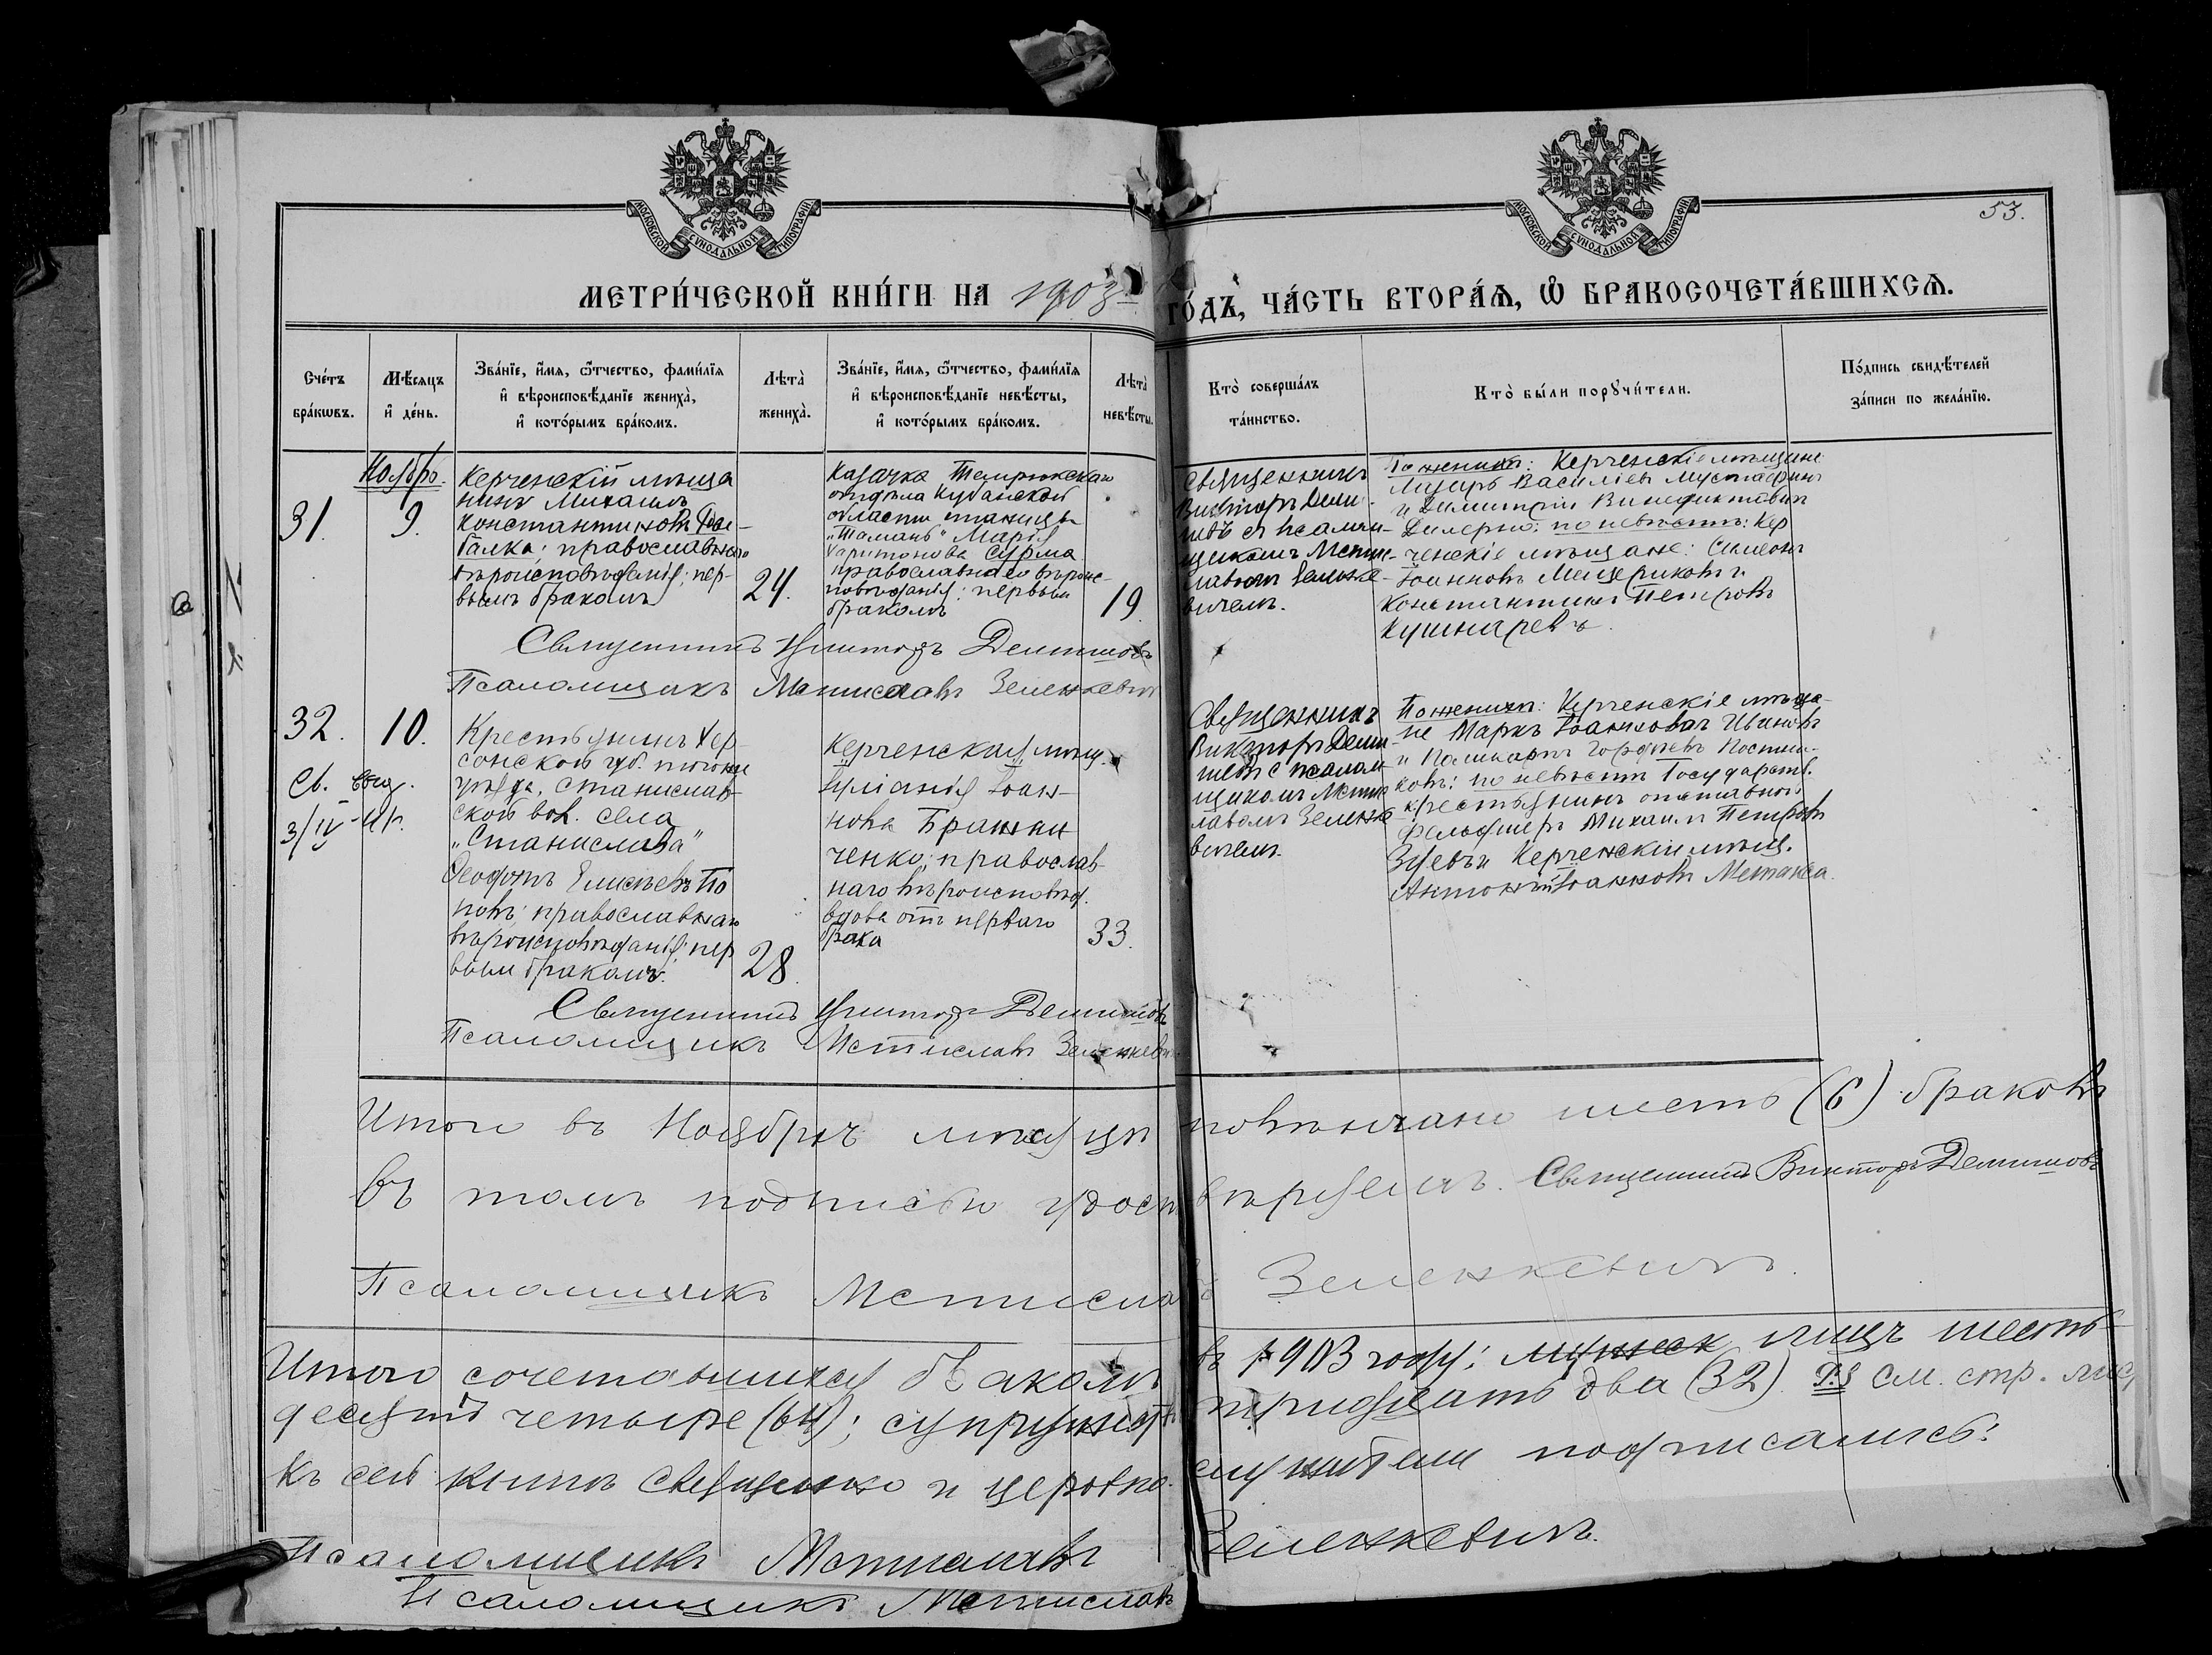 МОСКОВСКОЙ СУНОДАЛЬНОЙ ТИПОГРАФІИ
МОСКОВСКОЙ СУНОДАЛЬНОЙ ТИПОГРАФІИ
53.
МЕТРИ́ЧЕСКОЙ КНИ́ГИ НА 1903 ГО́ДЪ, ЧА́СТЬ ВТОРА́Ѧ, Ѽ БРАКОСОЧЕТА́ВШИХСѦ.
Сче́тъ
бра́кѡвъ.
Мѣ́сяцъ
и҆ де́нь.
Зва́нїе, и҆́мя, ѻ҆́тчество, фами́лїя
и҆ вѣроисповѣ́данїе жениха̀,
и҆ кото́рымъ бра́комъ.
Лѣта̀
жениха̀.
Зва́нїе, и҆́мя, ѻ҆́тчество, фами́лїя
и҆ вѣроисповѣ́данїе невѣ́сты,
и҆ кото́рымъ бра́комъ.
Лѣта̀
невѣ́сты.
Кто̀ соверша́лъ
та́инство.
Кто̀ бы́ли порꙋчи́тели.
По́дпись свидѣ́телей
за́писи по жела́нїю.
31.
Ноябрь.
9.
Керченскій мѣща
нинъ Михаилъ
Константиновъ
балка; православнаго
вѣроисповѣданія; пер-
вымъ бракомъ
24.
Казачка Темрюкскаго
отдѣла Кубанской
области станицы
„Тамань" Марія
Харитонова Сурма
православнаго вѣроис-
повѣданія: первымъ
бракомъ
19.
Священникъ
Викторъ Деми-
шевъ съ псалом-
щикомъ Мсти-
славомъ Зеленке-
вичемъ.
По женихѣ: Керченскіе мѣщане
Василіевъ
и Димитрій
по невѣстѣ: Кер
ченскіе мѣщане: Симеонъ
Іоанновъ Мещериковъ и
Константинъ Петровъ
Кушнаревъ.
Священникъ Викторъ Демишевъ
Псаломщикъ Мстиславъ Зеленкевичъ
32.
10.
Св.
3/IV
Крестьянинъ Хер-
сонской губ. того же
уѣзда, Станислав-
ской вол. села
„Станислава"
Ѳеофанъ Елисѣевъ По
повъ; православнаго
вѣроисповѣданія; пер
вымъ бракомъ.
28.
Керченская мѣщ.
Іуліанія Іоан-
нова Бражни
ченко; православ-
наго вѣроисповѣд.
вдова отъ перваго
брака
33.
Священникъ
Викторъ Деми-
шевъ с псалом-
щикомъ Мсти
славомъ Зеленке
вичемъ.
По женихѣ: Керченскіе мѣща-
не Маркъ Іоанновъ Ивановъ
и Поликарпъ Гордѣевъ Постни-
ковъ: по невѣстѣ Государств.
крестьянинъ отставной
фельдшеръ Михаилъ Петровъ
Зуевъ и Керченскій мѣщ.
Антоній Іоанновъ Метакса.
Священникъ Викторъ Демишевъ
Псаломщикъ Мстиславъ Зеленкевичъ
Итого въ Ноябрѣ мѣсяцѣ повѣнчано шесть (6) браковъ
въ томъ подписью удостовѣряемъ. Священникъ Викторъ Демишевъ
Псаломщикъ Мстиславъ Зеленкевичъ.
Итого сочетавшихся бракомъ въ 1903 году: лицъ шесть-
десятъ четыре (64); супружествъ тридцать два (32). см. стр.
Къ сей книгѣ священно и церковно-служители подписались:
Псаломщикъ Мстиславъ Зеленкевичъ.
Псаломщикъ Мстиславъ